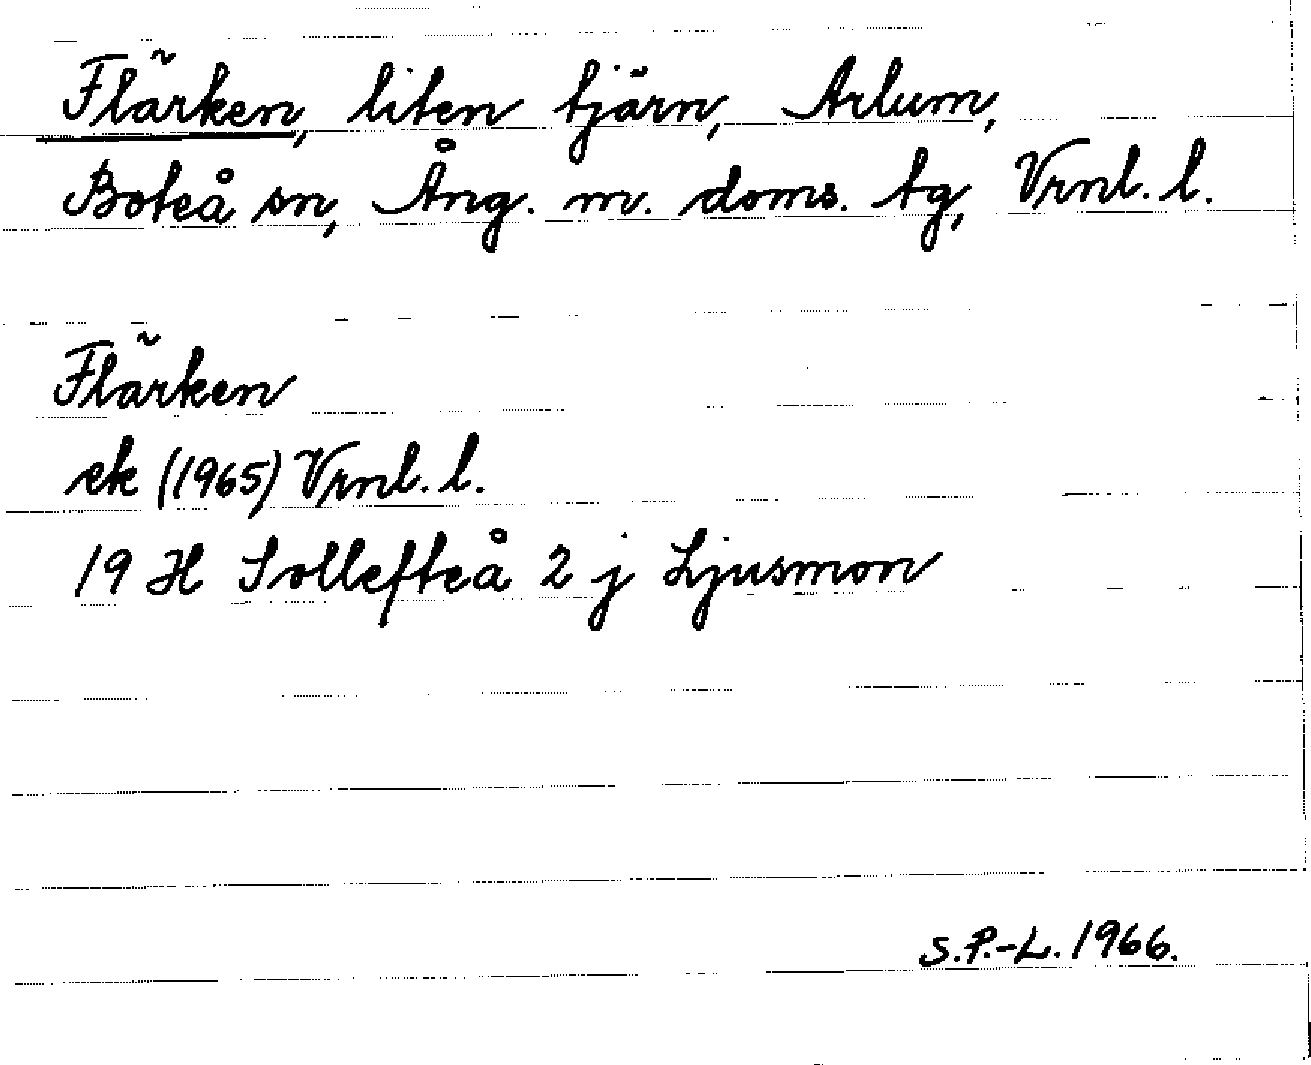 Flärken, liten tjärn, Arlum,
Boteå sn, Ång. m. doms. tg, Vrnl. l.
Flärken
ek (1965) Vrnl. l.
19 H Sollefteå 2 j Ljusmon
S.P.-L. 1966.